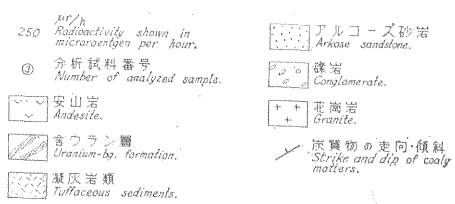 μr/h
250 Radioactivity shown in
microroentgen per hour.
分析試料番号
Number of analyzed sample.
安山岩
Andesite.
含ウラン層
Uranium-bg. formation.
凝灰岩類
Tuffaceous sediments.
アルコーズ砂岩
Arkose sandstone.
礫岩
Conglomerate.
花崗岩
Granite.
炭質物の走向・傾斜
Strike and dip of coaly
matters.